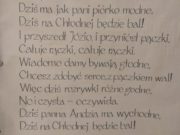 Dziś ma jak pani piórko modne,
Dziś na Chłodnej będzie bal!
I przyszedł Józio, i przyniósł pączki,
Całuje rączki, całuje rączki.
Wiadomo damy bywają głodne,
Chcesz zdobyć serce z pączkiem wal!
Więc dziś rozrywki różne godne,
No i czysta - oczywista.
Dziś panna Andzia ma wychodne,
Dziś na Chłodnej będzie bal!